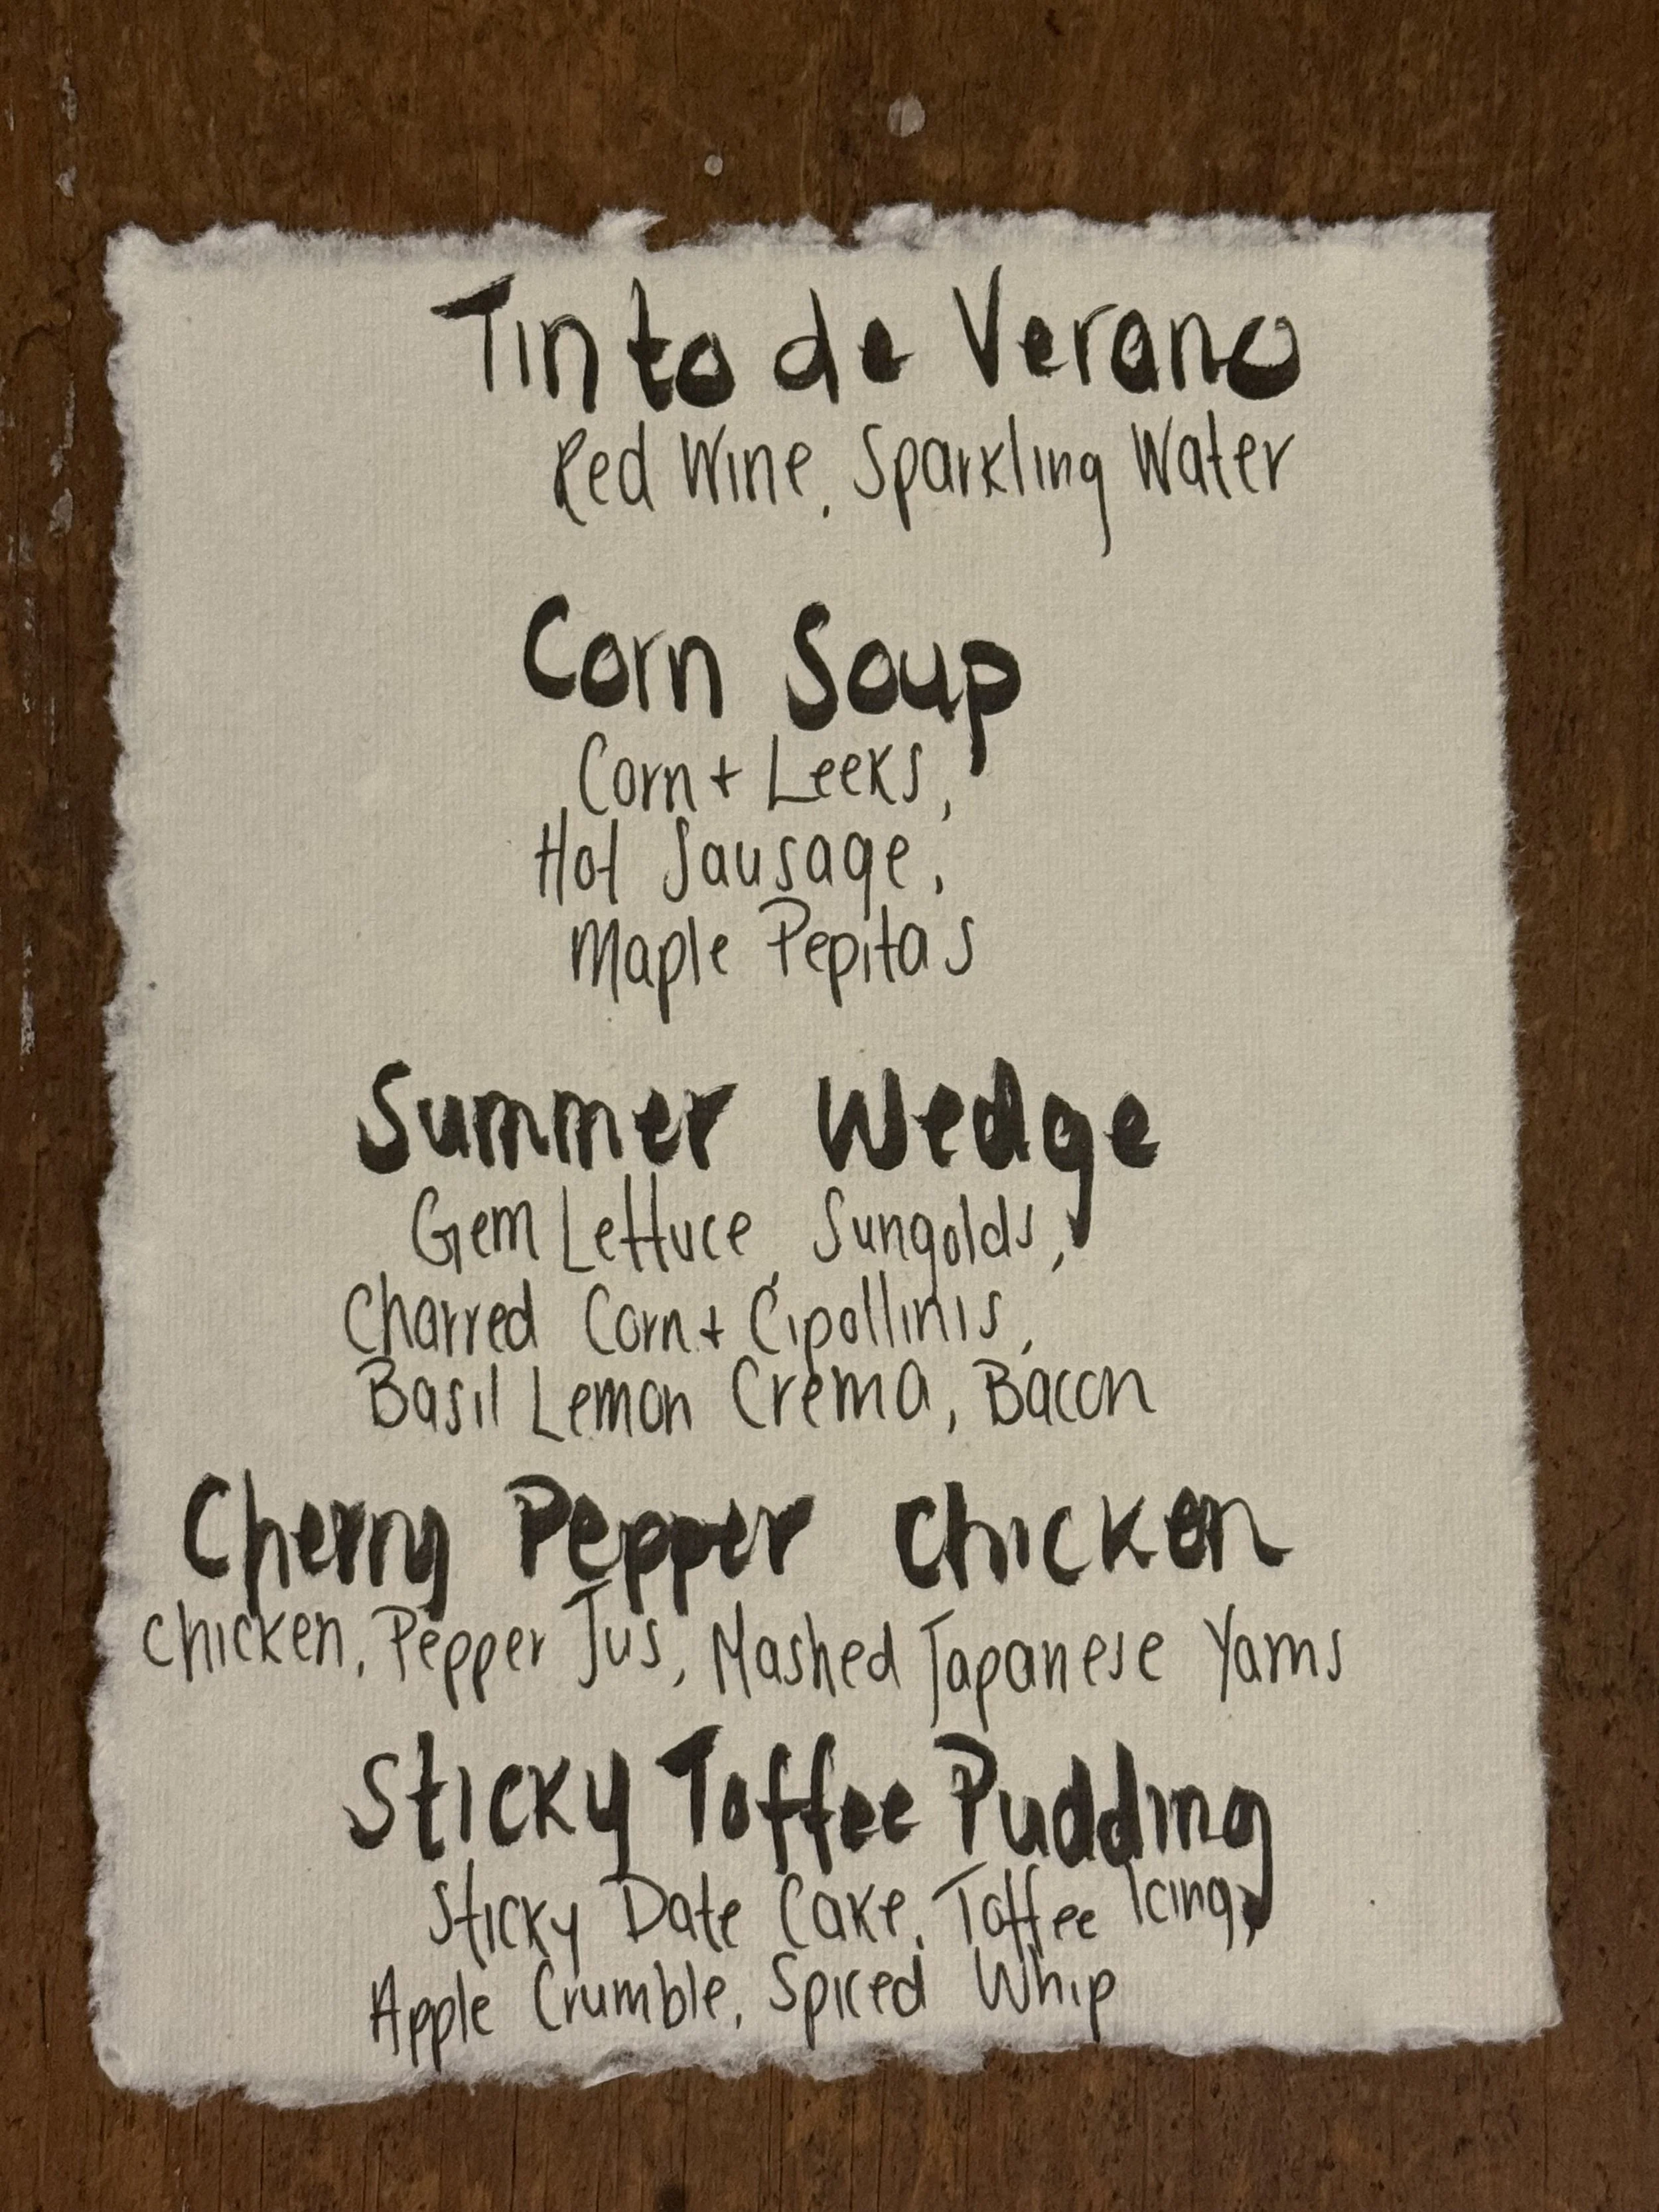 Tinto de Verano
Red Wine, Sparkling Water
Corn Soup
Corn + Leeks,
Hot Sausage,
Maple Pepitas
Summer Wedge
Gem Lettuce, Sungolds,
Charred Corn + Cipollinis,
Basil Lemon Crema, Bacon
Cherry Pepper Chicken
Chicken, Pepper Jus, Mashed Japanese Yams
Sticky Toffee Pudding
Sticky Date Cake, Toffee Icing,
Apple Crumble, Spiced Whip